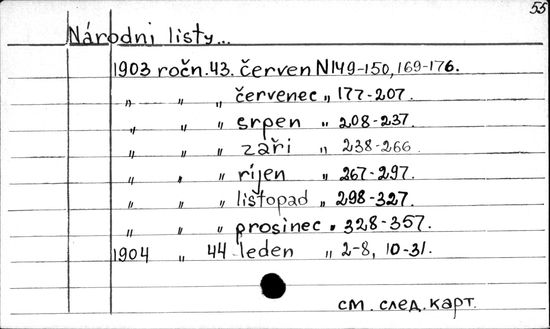 55
Národni listy...
1903 ročn. 43. červen N149-150, 169-176.
„ „ „ červenec „ 177-207.
„ „ „ srpen „ 208-237.
„ „ „ září „ 238-266
„ „ „ říjen „ 267-297.
„ „ „ listopad „ 298-327.
„ „ „ prosinec „ 328-357.
1904 „ 44 leden „ 2-8, 10-31.
см. след. карт.